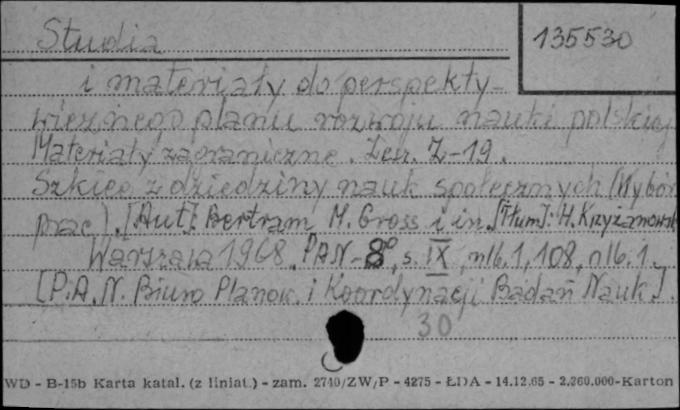 Studia
135530
i materiały do perspekty-
wicznego planu rozwoju nauki polskiej
Materiały zagraniczne. Zesz. Z-19.
Szkice z dziedziny nauk społecznych (Wybór
prac). [Aut]: Bertram M. Gross i in. [Tłum]: H. Krzyżanowsk
Warszawa 1968, PAN - 8°, s. IX, nlb. 1, 108, nlb. 1.
[P.A.N. Biuro Planow. i Koordynacji Badań Nauk.].
30
WD - B-15b Karta katal. (z liniat.) - zam. 2740/ZW/P - 4275 - ŁDA - 14.12.65 - 2.260.000-Karton